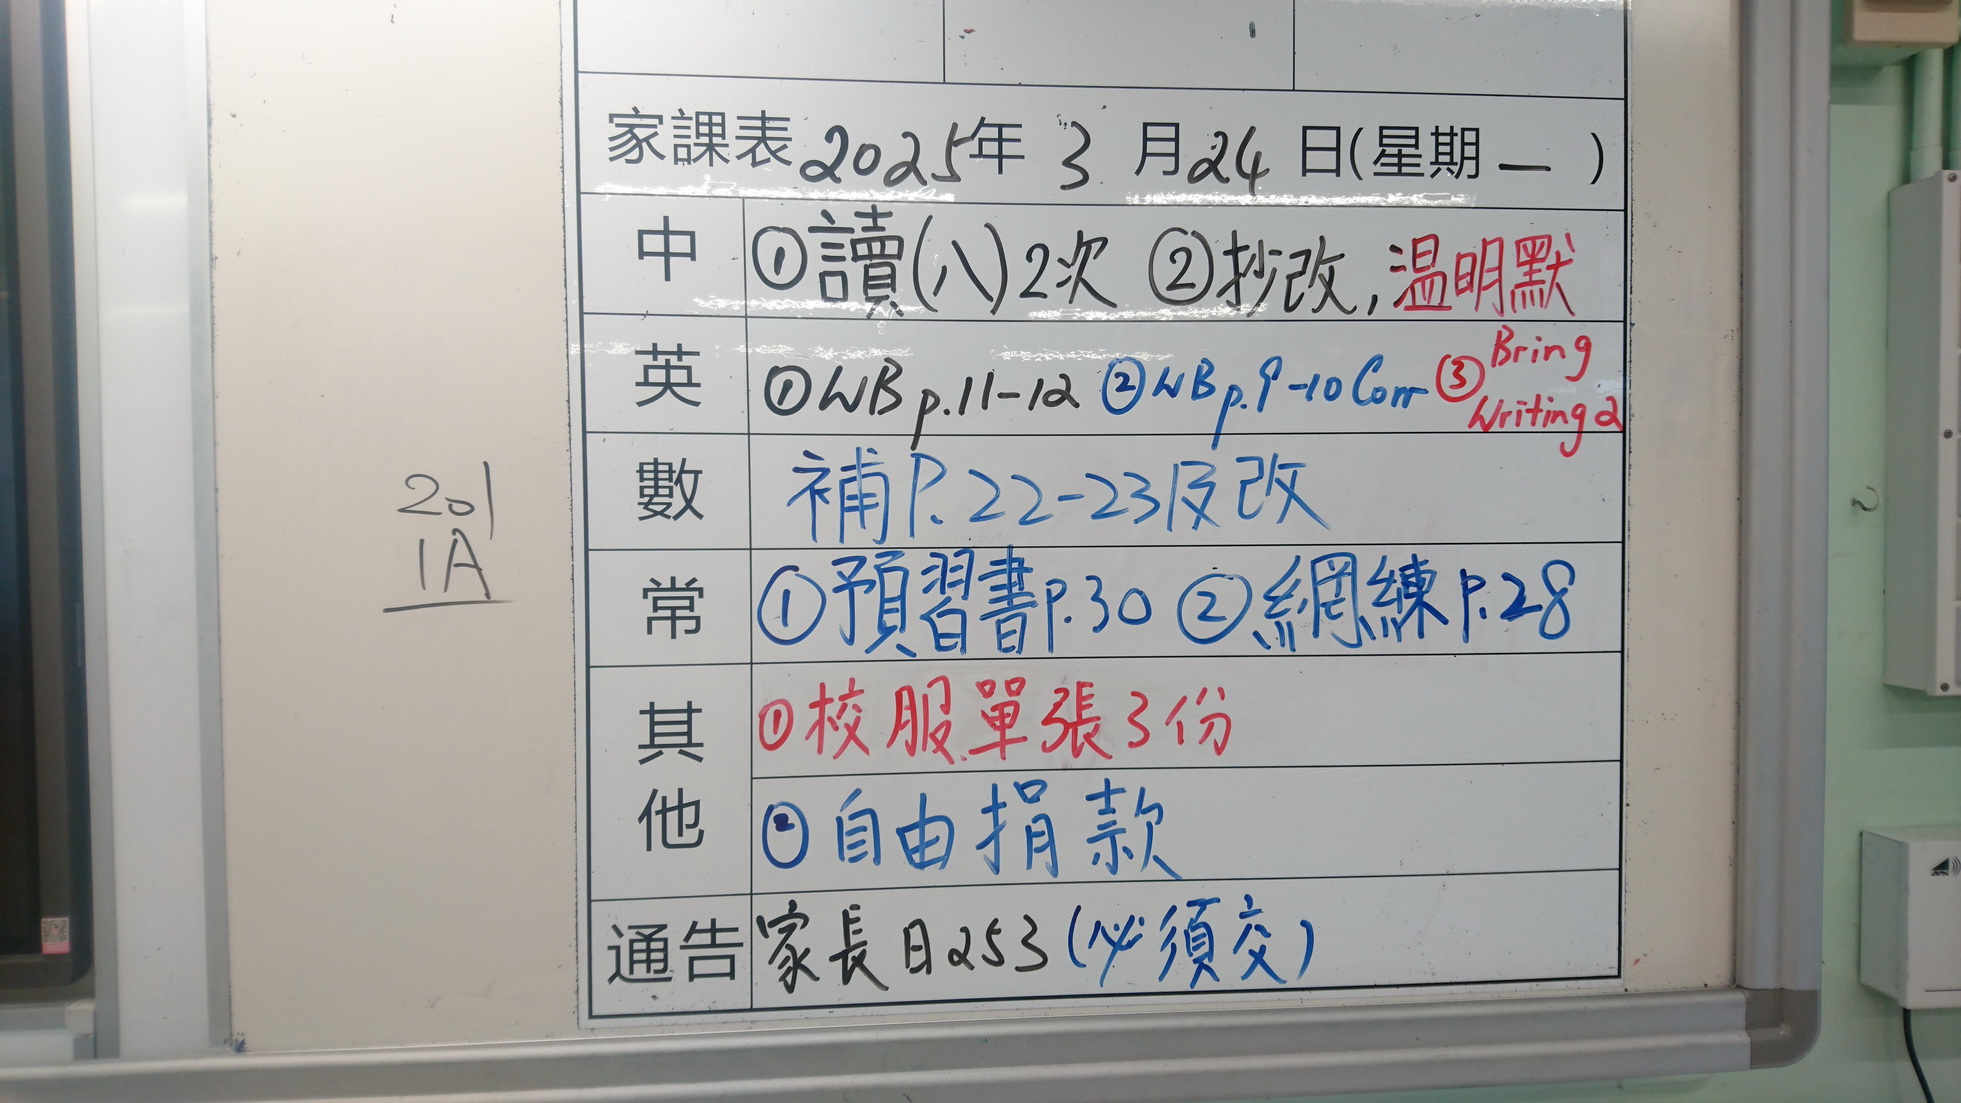 家課表 2025年 3 月 24 日(星期 一 )
中 ①讀(八)2次 ②抄改,温明默
英 ①WB p.11-12 ②WB p.9-10 Corr ③Bring Writing 2
數 補P.22-23及改
201
1A
常 ①預習書p.30 ②網練P.28
其他 ①校服單張3份
②自由捐款
通告 家長日253(必須交)